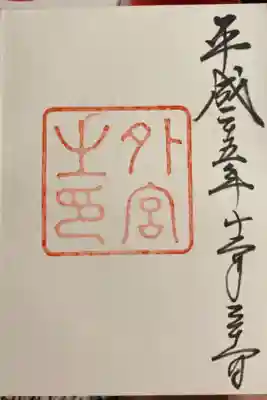 平成二十五年十月日
外宮
之印